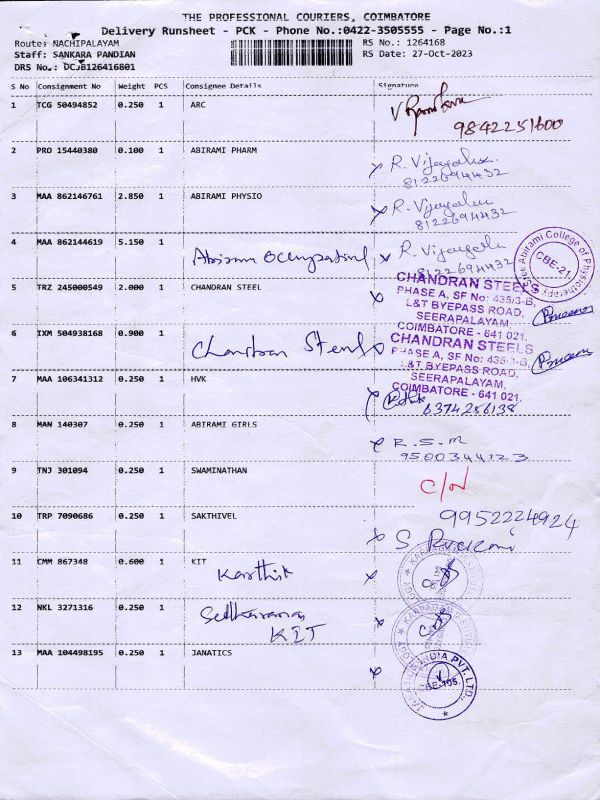 THE PROFESSIONAL COURIERS, COIMBATORE
Delivery Runsheet - PCK - Phone No.:0422-3505555 - Page No.:1
Route: NACHIPALAYAM
RS No.: 1264168
Staff: SANKARA PANDIAN
RS Date: 27-Oct-2023
DRS No.: DCJB126416801
S No Consignment No Weight PCS Consignee Details Signature
1 TCG 50494852 0.250 1 ARC
9842251600
2 PRO 15440380 0.100 1 ABIRAMI PHARM
R. Vijayalu
8122694432
3 MAA 862146761 2.850 1 ABIRAMI PHYSIO
R. Vijayalu
8122694432
4 MAA 862144619 5.150 1
R. Vijayalu
8122694432
Shree Abirami College of Physiotherapy
CBE-21.
5 TRZ 245000549 2.000 1 CHANDRAN STEEL
CHANDRAN STEELS
PHASE A, SF No: 435/3-B,
L&T BYEPASS ROAD,
SEERAPALAYAM,
COIMBATORE - 641 021.
6 IXM 504938168 0.900 1 Chandran Steels
CHANDRAN STEELS
PHASE A, SF No: 435/3-B,
L&T BYEPASS ROAD,
SEERAPALAYAM,
COIMBATORE - 641 021.
7 MAA 106341312 0.250 1 HVK
6374256138
8 MAN 140307 0.250 1 ABIRAMI GIRLS
R.S.M
9500344223
9 TNJ 301094 0.250 1 SWAMINATHAN
C/N
10 TRP 7090686 0.250 1 SAKTHIVEL
9952224924
11 CMM 867348 0.600 1 KIT
Karthik
12 NKL 3271316 0.250 1
KIT
13 MAA 104498195 0.250 1 JANATICS
INDIA PVT. LTD.
CBE-105.